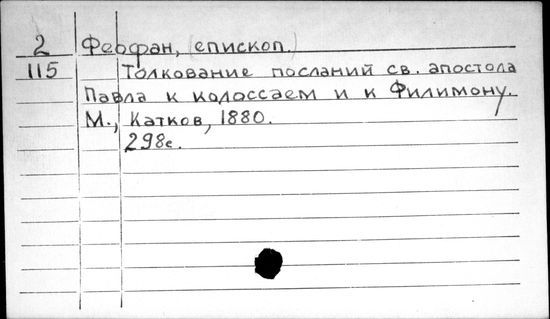 2 Феофан, (епископ.)
115 Толкование посланий св. апостола
Павла к колоссаем и к Филимону.
М., Катков, 1880.
298с.